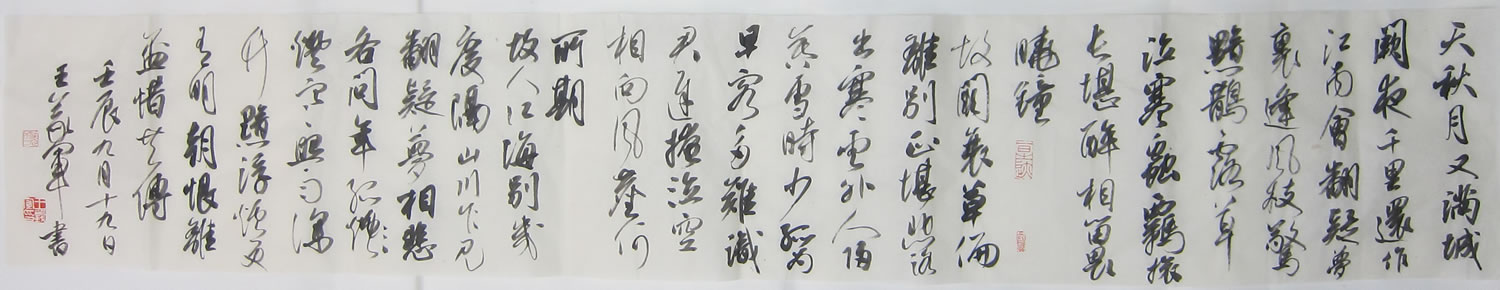 天秋月又滿城
闕夜千重還作
江南會翻疑夢
裏逢風枝驚
黯鵲露草
泣寒蟲羈旅
長堪醉相留畏
曉鐘
故關衰草徧
離別正堪悲路
出寒雲外人歸
暮雪時少孤為
早客多難識
君遲掩泣空
相向風塵何
所期
故人江海別幾
度隔山川乍見
翻疑夢相悲
各問年孤燈
燈寒照雨深
竹黯浮煙更
有明朝恨離
盃惜共傳
壬辰九月十九日
王義軍書